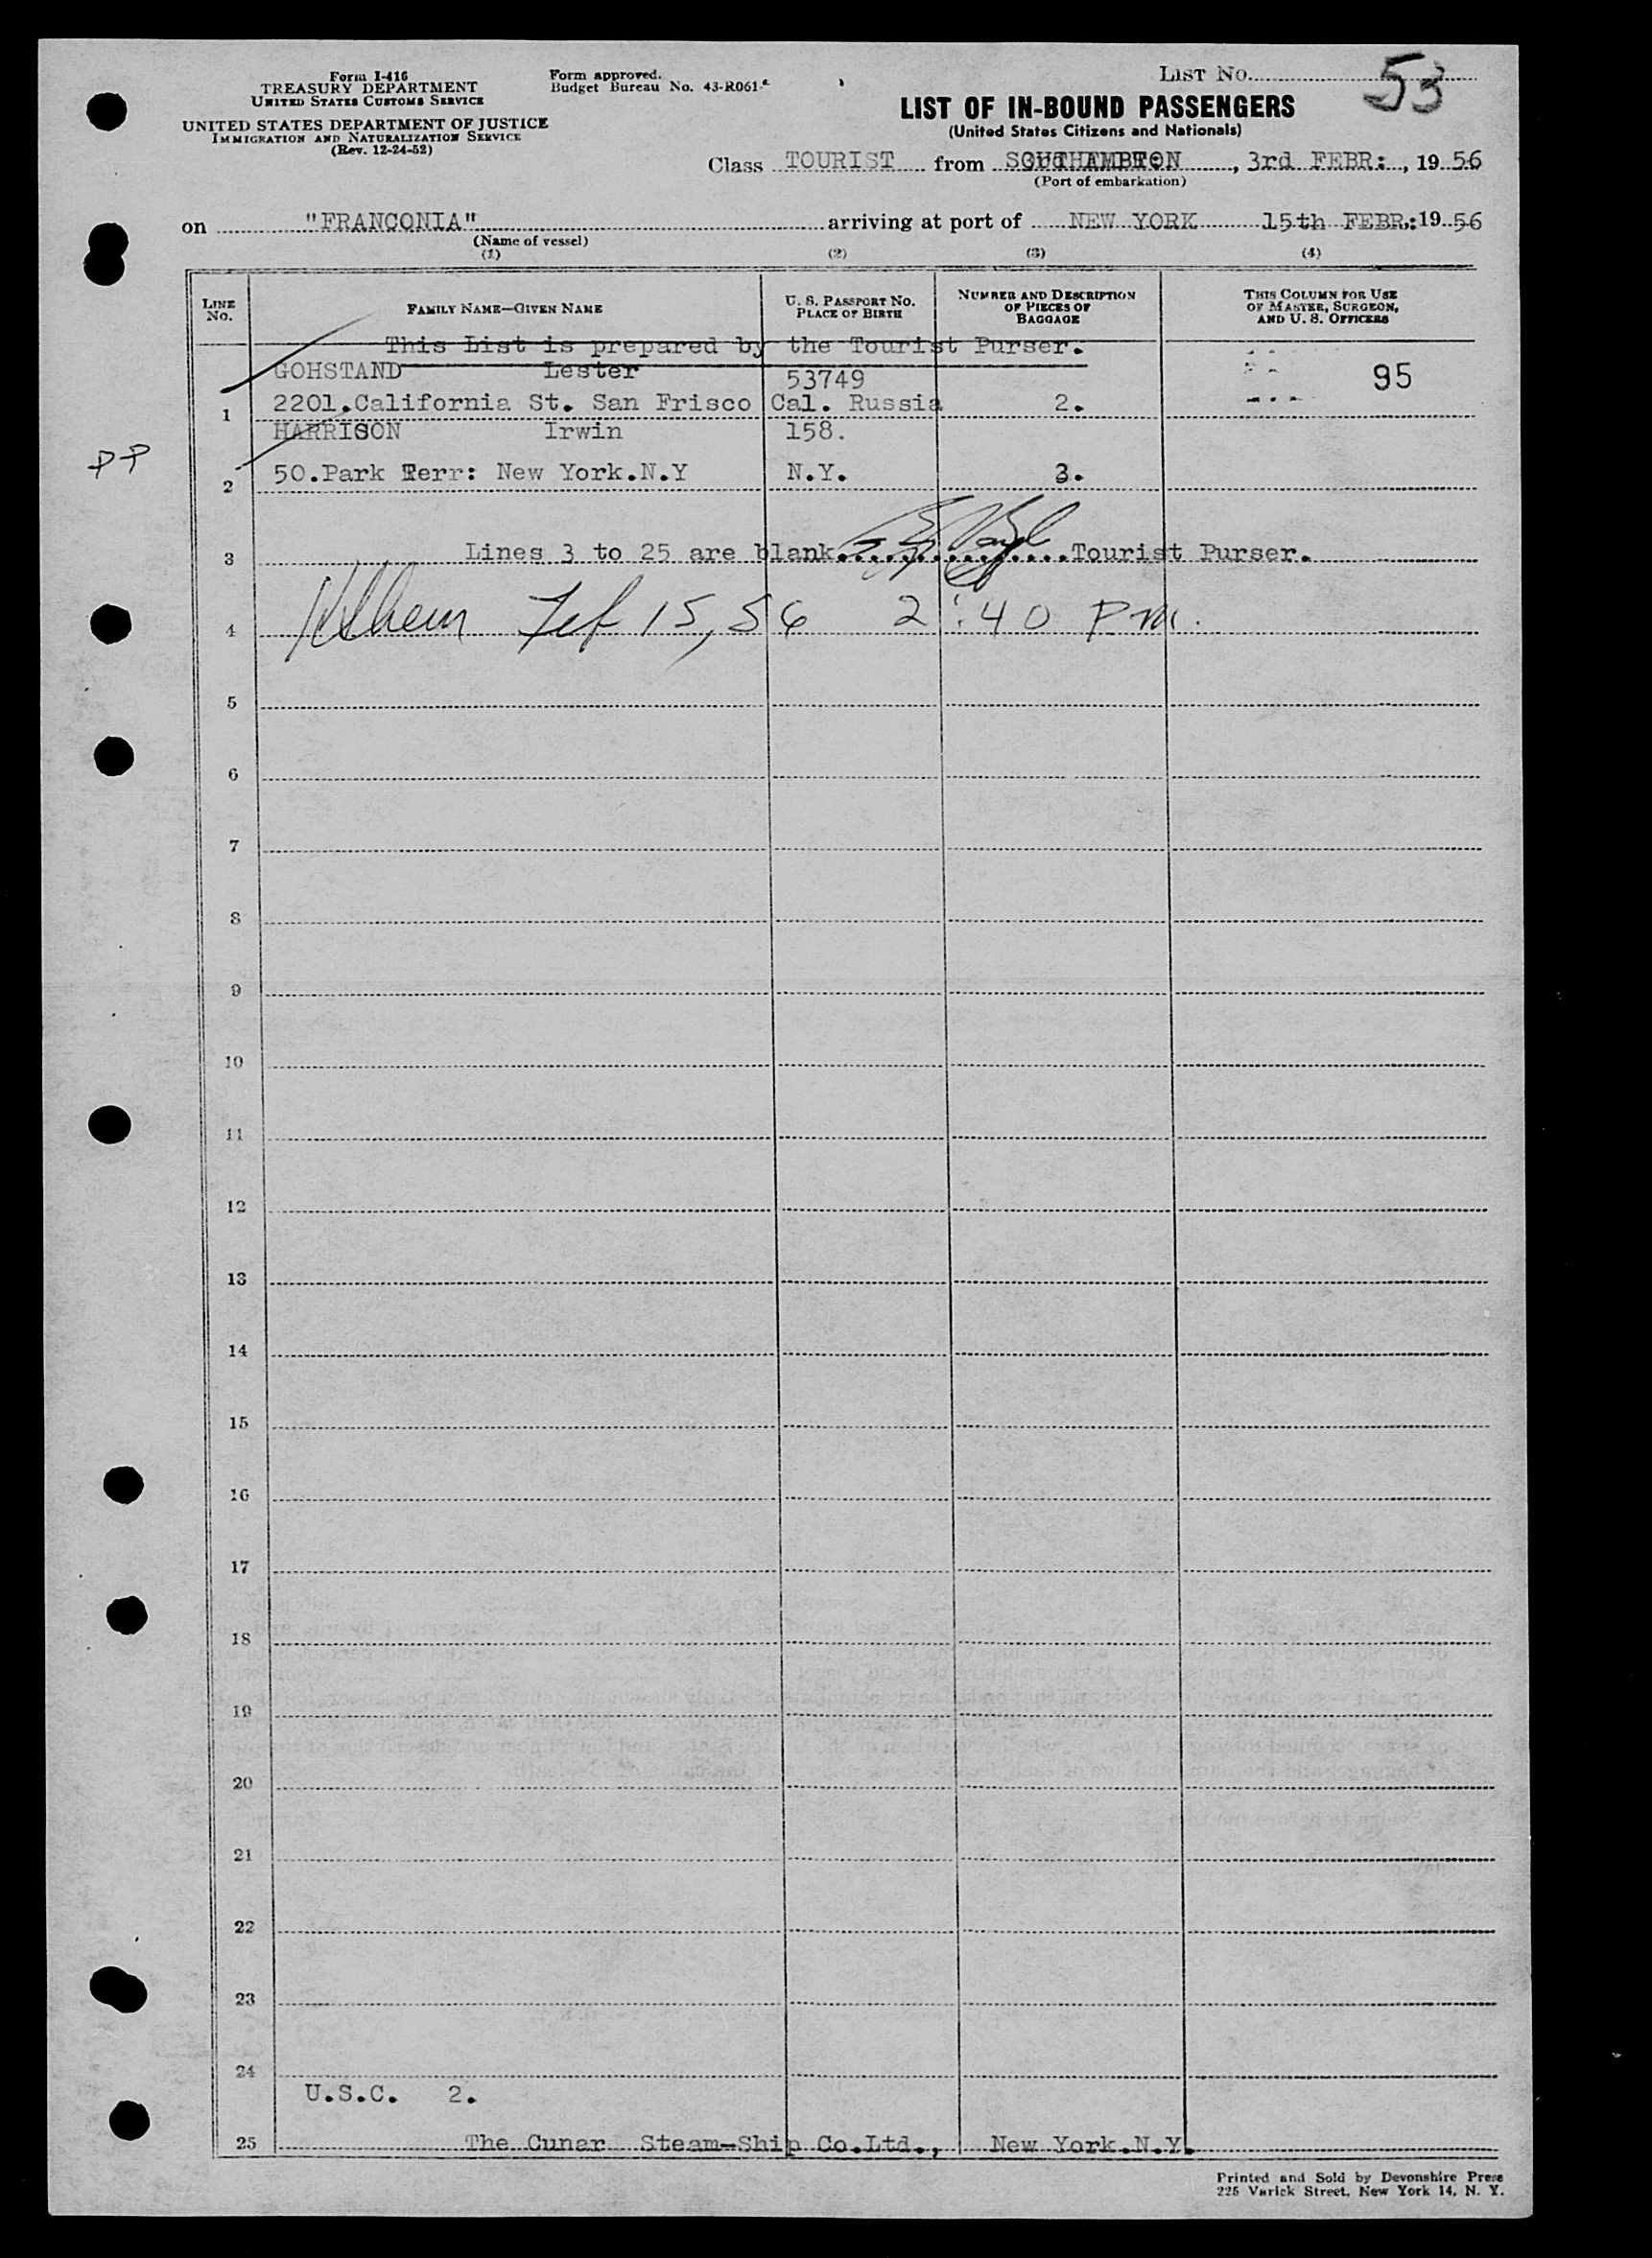 Form I-416
TREASURY DEPARTMENT
UNITED STATES CUSTOMS SERVICE
UNITED STATES DEPARTMENT OF JUSTICE
IMMIGRATION AND NATURALIZATION SERVICE
(Rev. 12-24-52)
Form approved.
Budget Bureau No. 43-R061
LIST No. 53
LIST OF IN-BOUND PASSENGERS
(United States Citizens and Nationals)
Class TOURIST from SOUTHAMPTON, 3rd FEBR:, 19 56
(Port of embarkation)
on "FRANCONIA" arriving at port of NEW YORK 15th FEBR: 19 56
(Name of vessel)
(1) (2) (3) (4)
LINE No. FAMILY NAME—GIVEN NAME U. S. PASSPORT NO. PLACE OF BIRTH NUMBER AND DESCRIPTION OF PIECES OF BAGGAGE THIS COLUMN FOR USE OF MASTER, SURGEON, AND U. S. OFFICERS
This List is prepared by the Tourist Purser.
GOHSTAND Lester 53749 95
1 2201.California St. San Frisco Cal. Russia 2.
HARRISON Irwin 158.
PP
2 50.Park Terr: New York.N.Y N.Y. 3.
3 Lines 3 to 25 are blank. Tourist Purser.
4 Feb 15, 56 2:40 PM.
5
6
7
8
9
10
11
12
13
14
15
16
17
18
19
20
21
22
23
24
U.S.C. 2.
25 The Cunar Steam-Ship Co.Ltd., New York.N.Y.
Printed and Sold by Devonshire Press
225 Varick Street, New York 14, N. Y.